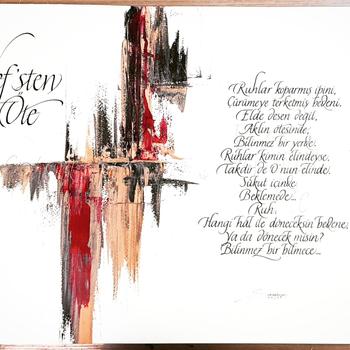 ef'sten
Öte
Ruhlar koparmış ipini,
Çürümeye terketmiş bedeni.
Elde desen değil,
Aklın ötesinde,
Bilinmez bir yerde.
Ruhlar kimin elindeyse,
Takdir de O'nun elinde.
Sükut içinde
Beklemede...
Ruh!
Hangi hal ile döneceksin bedene,
Ya da dönecek misin?
Bilinmez bir bilmece...